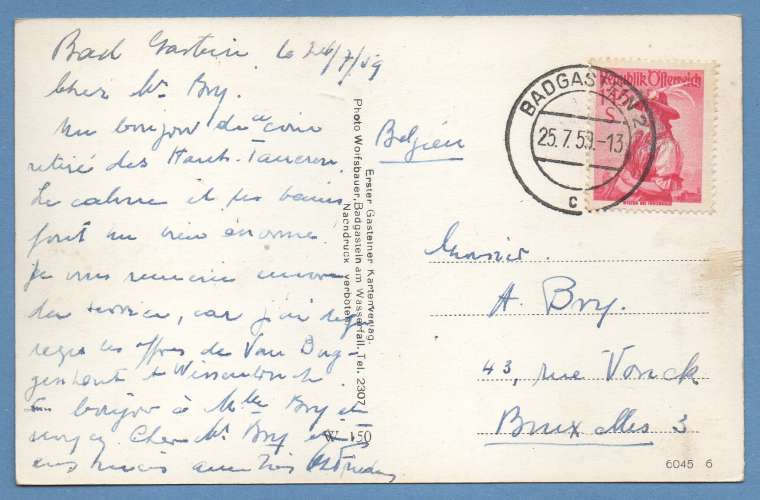 Bad Gastein, le 24/7/59
Cher Mr Bry.
Un bonjour du coin
retiré des Hauts-Tauern.
Le calme et les bains
font un bien énorme.
Je vous remercie encore
du service, car j'ai reçu
les offres de Van
bonjour à Mlle Bry et
Cher Mr Bry
Erster Gasteiner Kartenverlag.
Photo Wolfsbauer, Badgastein am Wasserfall, Tel. 2307
Nachdruck verboten
W 150
Belgien
BADGASTEIN 2
25.7.59.-13
c
Republik Österreich
Monsieur.
A. Bry.
43, rue Vonck
Bruxelles 3
6045 6